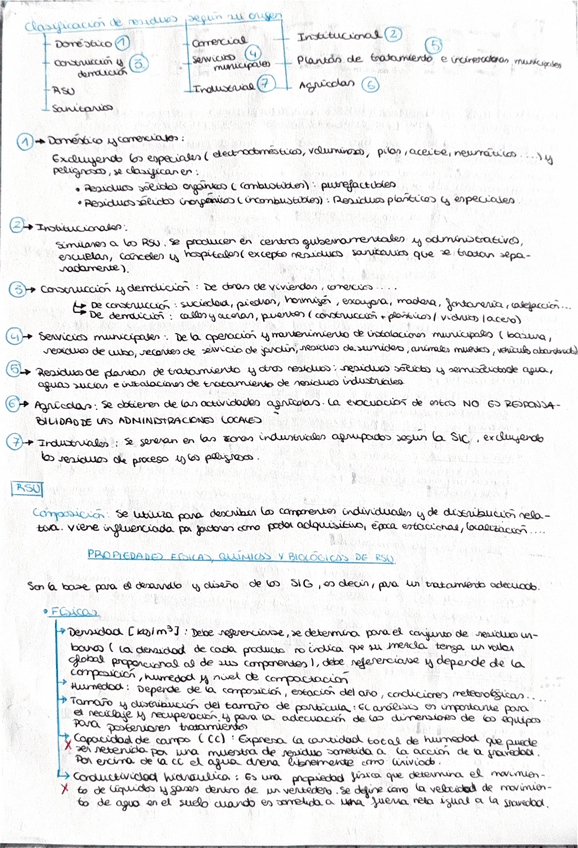 Clasificación de residuos según su origen
Doméstico ①
Construcción y demolición ③
RSU
Sanitarios
Comercial
Servicios municipales ④
Industrial ⑦
Institucional ②
Plantas de tratamiento e incineradoras municipales ⑤
Agrícolas ⑥
① → Doméstico y comerciales:
Excluyendo los especiales (electrodomésticos, voluminosos, pilas, aceite, neumáticos....) y
peligrosos, se clasifican en:
• Residuos sólidos orgánico (combustibles): putrefactibles
• Residuos sólidos inorgánico (incombustibles): Residuos plásticos y especiales.
② → Institucionales:
Similares a los RSU. Se producen en centros gubernamentales y administrativos,
escuelas, cárceles y hospitales (excepto residuos sanitarios que se tratan sepa-
radamente).
③ → Construcción y demolición: De obras de viviendas, comercios....
↳ De construcción: suciedad, piedras, hormigón, escayora, madera, fontanería, calefacción...
↳ De demolición: calles y aceras, puentes (construcción + plásticos / vidrios / acero)
④ → Servicios municipales: De la operación y mantenimiento de instalaciones municipales (basura,
residuo de cubo, recortes de servicio de jardín, residuos de sumidero, animales muertos, vehículo abandonado)
⑤ → Residuos de plantas de tratamiento y otros residuos: residuos sólidos y semisólidos de agua,
aguas sucias e instalaciones de tratamiento de residuos industriales
⑥ → Agrícolas: Se obtienen de las actividades agrícolas. La evacuación de estos NO ES RESPONSA-
BILIDAD DE LAS ADMINISTRACIONES LOCALES
⑦ → Industriales: Se generan en las zonas industriales agrupados según la SIC, excluyendo
los residuos de proceso y los peligrosos.
RSU
Composición: Se utiliza para describir los componentes individuales y de distribución rela-
tiva. Viene influenciada por factores como poder adquisitivo, época estacional, localización....
PROPIEDADES FÍSICAS, QUÍMICAS Y BIOLÓGICAS DE RSU
Son la base para el desarrollo y diseño de los SIG, es decir, para un tratamiento adecuado.
• FÍSICAS
→ Densidad [kg/m³]: Debe referenciarse, se determina para el conjunto de residuos ur-
banos (la densidad de cada producto no indica que su mezcla tenga un valor
global proporcional al de sus componentes), debe referenciarse y depende de la
composición, humedad y nivel de compactación
→ Humedad: Depende de la composición, estación del año, condiciones meteorológicas....
→ Tamaño y distribución del tamaño de partícula: El análisis es importante para
el reciclaje y recuperación y para la adecuación de las dimensiones de los equipos
para posteriores tratamientos
→ Capacidad de campo (CC): Expresa la cantidad total de humedad que puede
x ser retenida por una muestra de residuo sometida a la acción de la gravedad.
Por encima de la CC el agua drena libremente como lixiviado.
→ Conductividad hidráulica: Es una propiedad física que determina el movimien-
x to de líquidos y gases dentro de un vertedero. Se define como la velocidad de movimien-
to de agua en el suelo cuando es sometida a una fuerza neta igual a la gravedad.